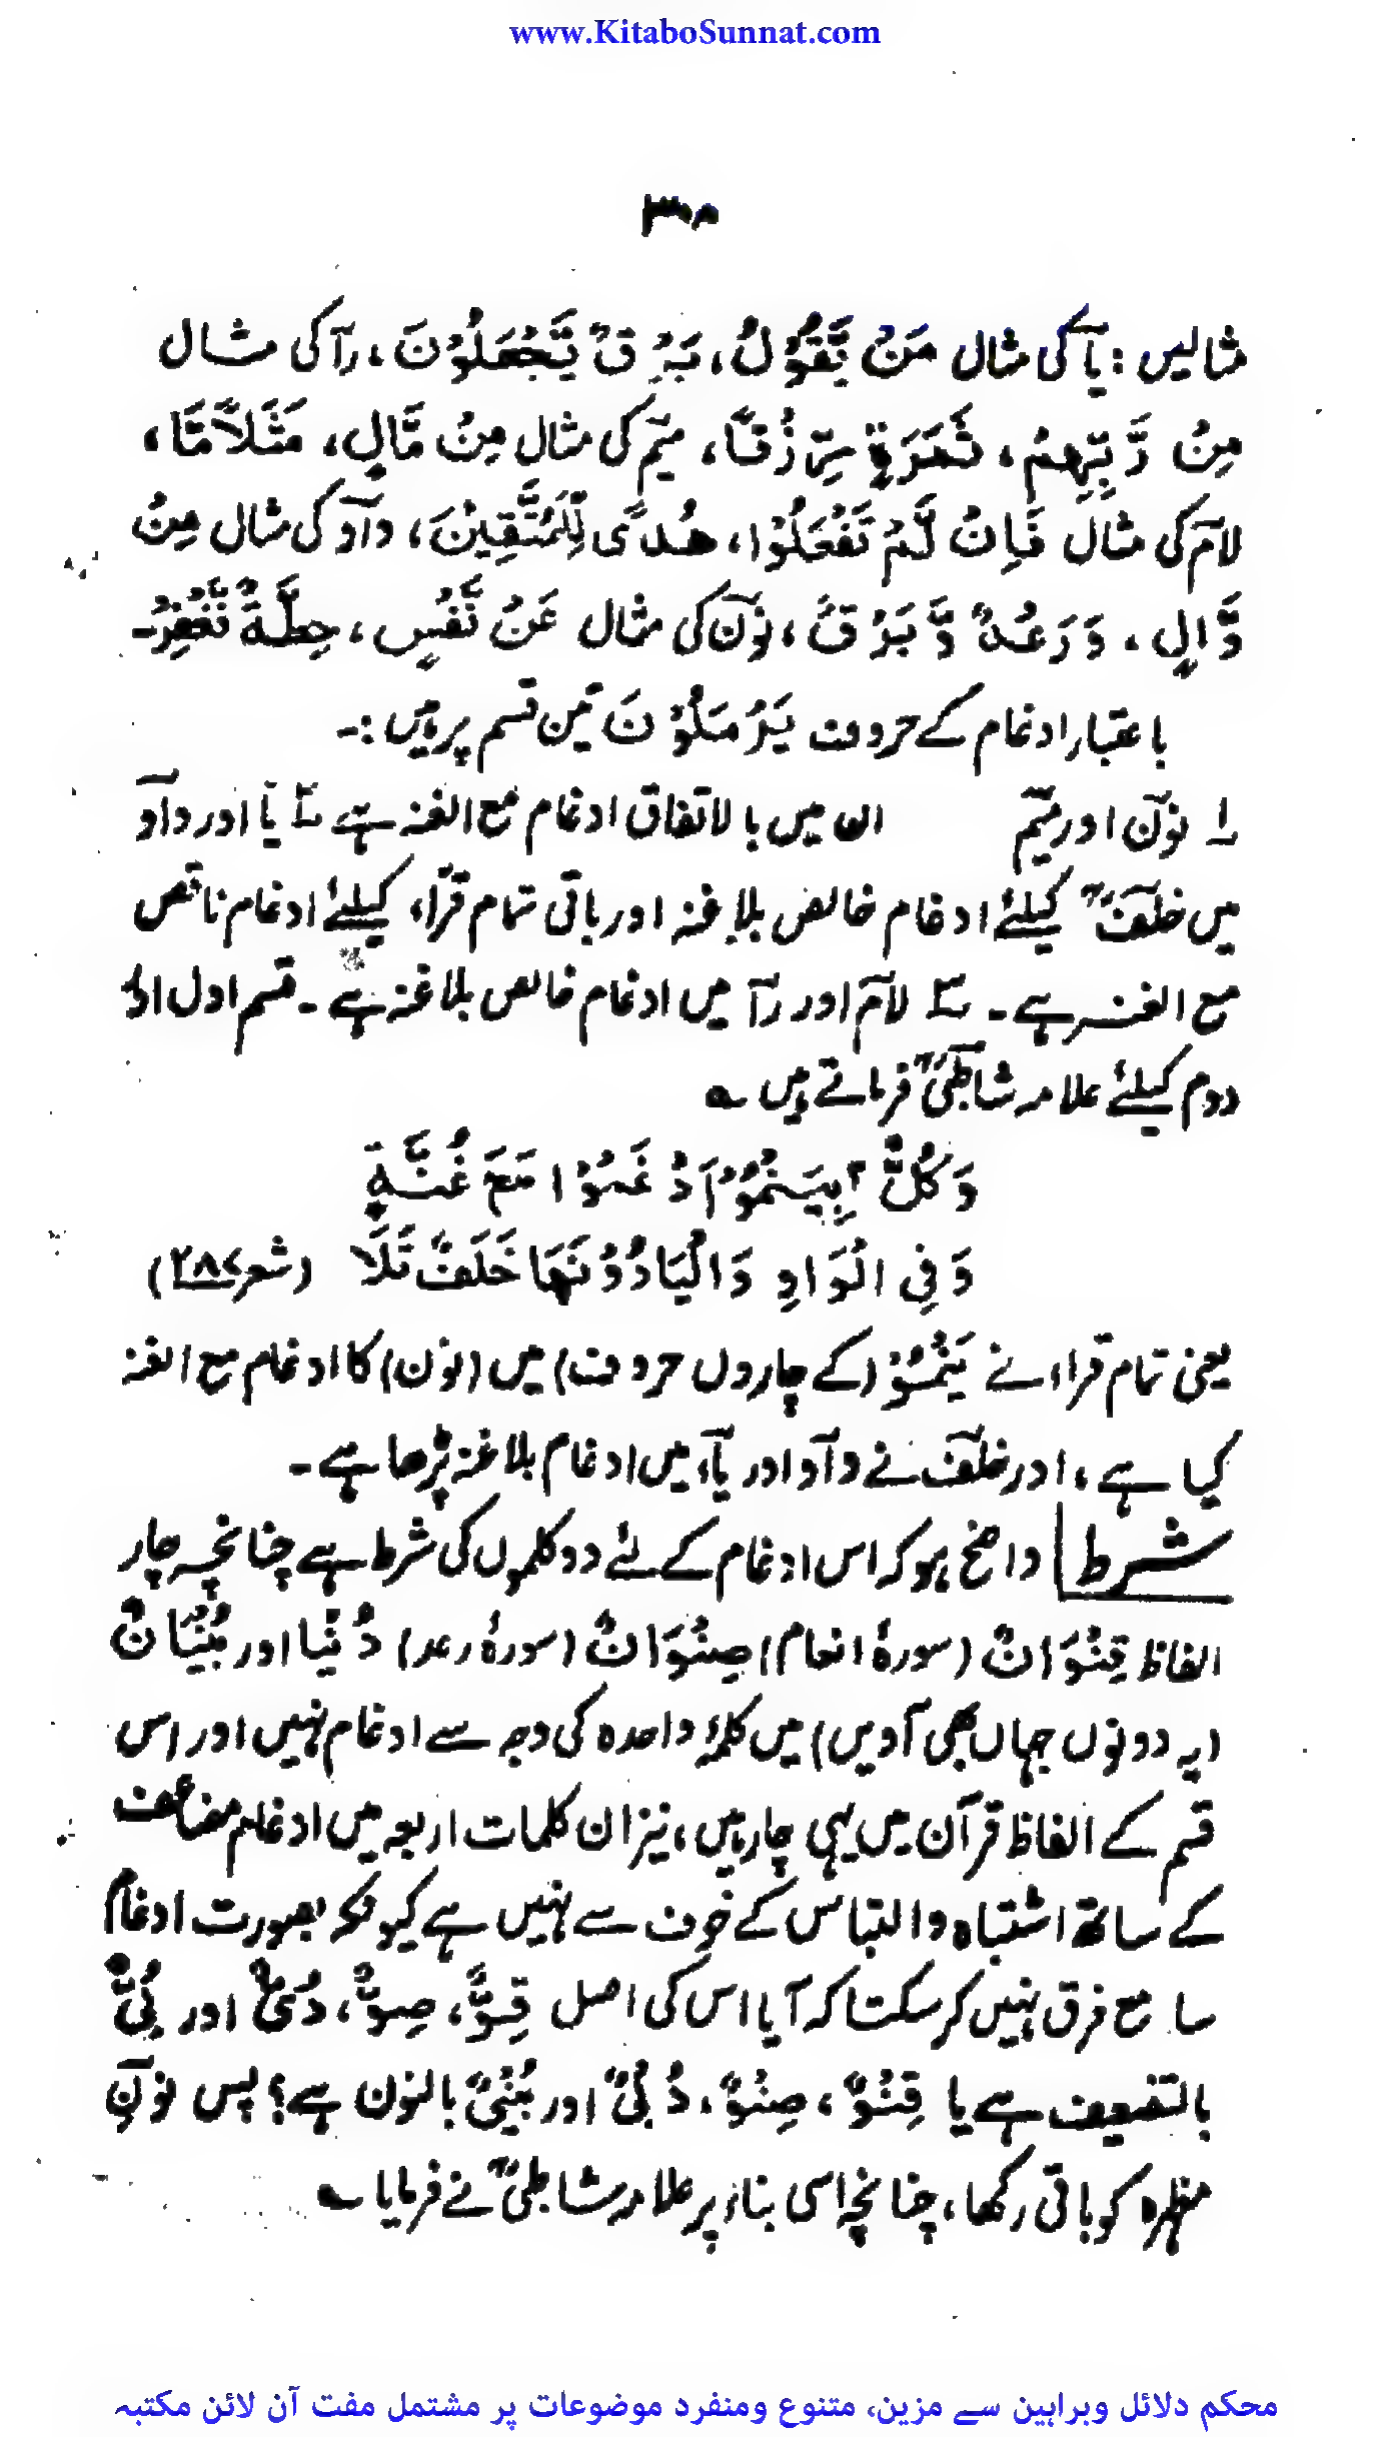 www.KitaboSunnat.com
۳۰۸
مثالیں: یآ کی مثال مَنْ یَّقُوْلُ، بَرْقٌ یَّجْعَلُوْنَ، رآ کی مثال
مِنْ رَّبِّهِمْ، ثَمَرَةٍ رِّزْقًا، میٓم کی مثال مِنْ مَّالٍ، مَثَلًا مَّا،
لآم کی مثال فَاِنْ لَّمْ تَفْعَلُوْا، هُدًی لِّلْمُتَّقِیْنَ، وآو کی مثال مِنْ
وَّالٍ، وَرَعْدٌ وَّبَرْقٌ، نوٓن کی مثال عَنْ نَّفْسٍ، حِطَّةٌ نَّغْفِرْ۔
باعتبار ادغام کے حروف یَرْمَلُوْنَ تین قسم پر ہیں:۔
۱ نوٓن اور میٓم ان میں بالاتفاق ادغام مع الغنہ ہے ۲ یآ اور وآو
میں خلفؒ کیلئے ادغام خالص بلا غنہ اور باقی تمام قرّاء کیلئے ادغام ناقص
مع الغنہ ہے۔ ۳ لآم اور رآ میں ادغام خالص بلا غنہ ہے۔ قسم اول اور
دوم کیلئے علامہ شاطبیؒ فرماتے ہیں ؎
وَكُلٌّ ۢ بِیَنْمُوْ اَدْغَمُوْا مَعَ غُنَّةٍ
وَفِی الْوَاوِ وَالْیَا دُوْنَهَا خَلَفٌ تَلَا (شعر ۲۸۷)
یعنی تمام قراء نے یَنْمُوْ (کے چاروں حروف) میں (نون) کا ادغام مع الغنہ
کیا ہے، اور خلفؒ نے وآو اور یآء میں ادغام بلا غنہ پڑھا ہے۔
شرط واضح ہو کہ اس ادغام کے لئے دو کلموں کی شرط ہے چنانچہ چار
الفاظ قِنْوَانٌ (سورۂ انعام) صِنْوَانٌ (سورۂ رعد) دُنْیَا اور بُنْیَانٌ
(یہ دونوں جہاں بھی آویں) میں کلمۂ واحدہ کی وجہ سے ادغام نہیں اور اس
قسم کے الفاظ قرآن میں یہی چار ہیں، نیز ان کلمات اربعہ میں ادغام مضاعف
کے ساتھ اشتباہ و التباس کے خوف سے نہیں ہے کیونکہ بصورت ادغام
سامع فرق نہیں کر سکتا کہ آیا اس کی اصل قِوٌّ، صِوٌّ، دُیٌّ اور بُیٌّ
بالتضعیف ہے یا قِنْوٌ، صِنْوٌ، دُنْیٌ اور بُنْیٌ بالنون ہے؟ پس نوٓنِ
مظہرہ کو باقی رکھا، چنانچہ اسی بناء پر علامہ شاطبیؒ نے فرمایا ؎
محکم دلائل وبراہین سے مزین، متنوع ومنفرد موضوعات پر مشتمل مفت آن لائن مکتبہ